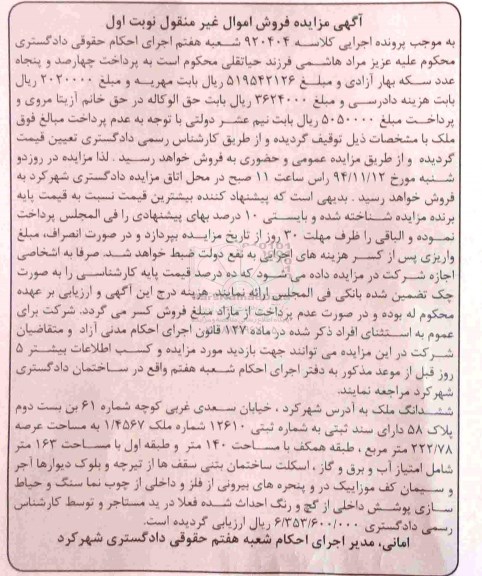 آگهی مزایده فروش اموال غیر منقول نوبت اول
به موجب پرونده اجرایی کلاسه ۹۲۰۴۰۴ شعبه هفتم اجرای احکام حقوقی دادگستری
محکوم علیه عزیز مراد هاشمی فرزند حیاتقلی محکوم است به پرداخت چهارصد و پنجاه
عدد سکه بهار آزادی و مبلغ ۵۱۹۵۴۲۱۲۶ ریال بابت مهریه و مبلغ ۲۰۲۰۰۰۰ ریال
بابت هزینه دادرسی و مبلغ ۳۶۲۴۰۰۰ ریال بابت حق الوکاله در حق خانم آزیتا مروی و
پرداخت مبلغ ۵۰۵۰۰۰۰ ریال بابت نیم عشر دولتی با توجه به عدم پرداخت مبالغ فوق
ملک با مشخصات ذیل توقیف گردیده و از طریق کارشناس رسمی دادگستری تعیین قیمت
گردیده و از طریق مزایده عمومی و حضوری به فروش خواهد رسید . لذا مزایده در روزدو
شنبه مورخ ۹۴/۱۱/۱۲ راس ساعت ۱۱ صبح در محل اتاق مزایده دادگستری شهرکرد به
فروش خواهد رسید . بدیهی است که پیشنهاد کننده بیشترین قیمت نسبت به قیمت پایه
برنده مزایده شناخته شده و بایستی ۱۰ درصد بهای پیشنهادی را فی المجلس پرداخت
نموده و الباقی را ظرف مهلت ۳۰ روز از تاریخ مزایده بپردازد و در صورت انصراف، مبلغ
واریزی پس از کسر هزینه های اجرایی به نفع دولت ضبط خواهد شد. صرفا به اشخاصی
اجازه شرکت در مزایده داده می شود که ده درصد قیمت پایه کارشناسی را به صورت
چک تضمین شده بانکی فی المجلس ارائه نمایند. هزینه درج این آگهی و ارزیابی بر عهده
محکوم له بوده و در صورت عدم پرداخت از مازاد مبلغ فروش کسر می گردد. شرکت برای
عموم به استثنای افراد ذکر شده در ماده ۱۲۷ قانون اجرای احکام مدنی آزاد و متقاضیان
شرکت در این مزایده می توانند جهت بازدید مورد مزایده و کسب اطلاعات بیشتر ۵
روز قبل از موعد مذکور به دفتر اجرای احکام شعبه هفتم واقع در ساختمان دادگستری
شهرکرد مراجعه نمایند.
ششدانگ ملک به آدرس شهرکرد ، خیابان سعدی غربی کوچه شماره ۶۱ بن بست دوم
پلاک ۵۸ دارای سند ثبتی به شماره ثبتی ۱۲۶۱۰ شماره ملک ۱/۴۵۶۷ به مساحت عرصه
۲۲۲/۷۸ متر مربع ، طبقه همکف با مساحت ۱۴۰ متر و طبقه اول با مساحت ۱۶۳ متر
شامل امتیاز آب و برق و گاز ، اسکلت ساختمان بتنی سقف ها از تیرچه و بلوک دیوارها آجر
و سیمان کف موزاییک در و پنجره های بیرونی از فلز و داخلی از چوب نما سنگ و حیاط
سازی پوشش داخلی از گچ و رنگ احداث شده فعلا در ید مستاجر و توسط کارشناس
رسمی دادگستری ۶/۳۵۳/۶۰۰/۰۰۰ ریال ارزیابی گردیده است.
امانی، مدیر اجرای احکام شعبه هفتم حقوقی دادگستری شهرکرد